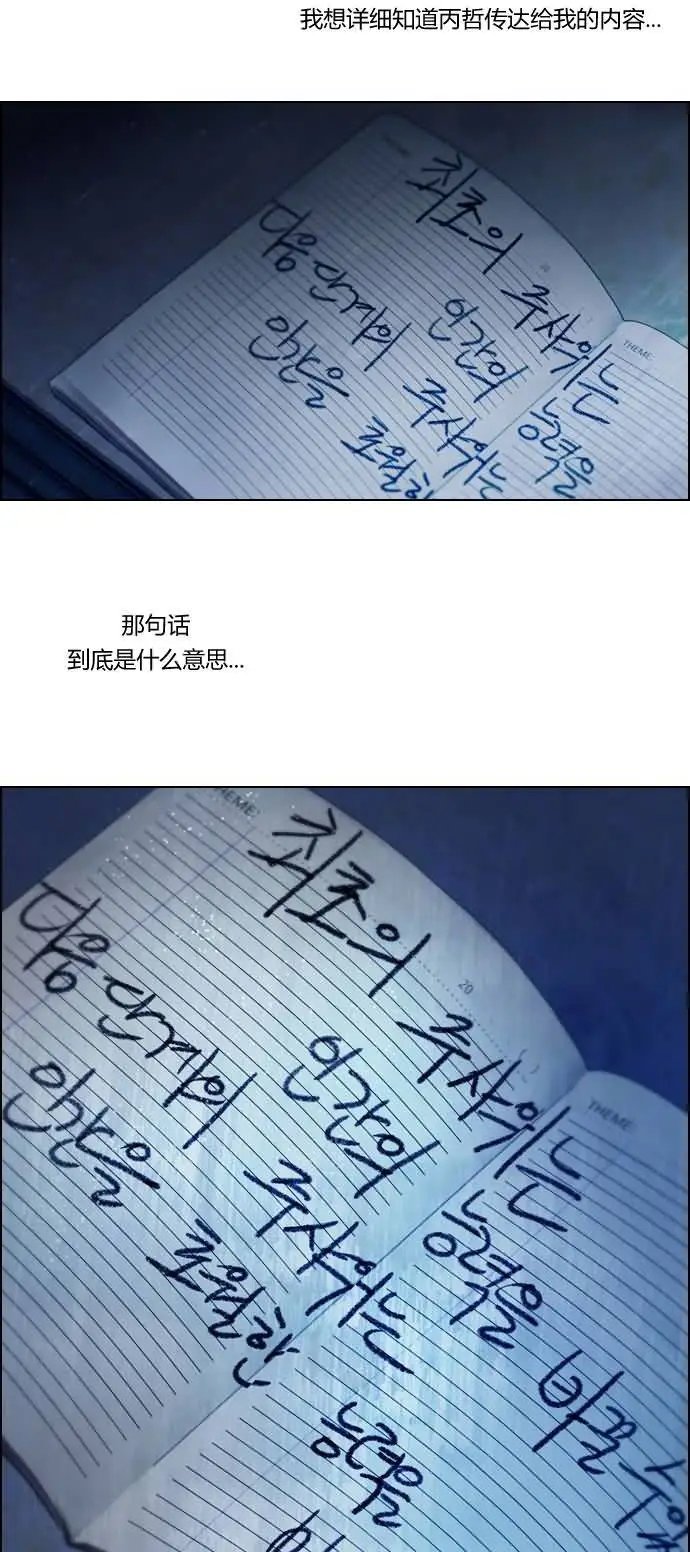 我想详细知道丙哲传达给我的内容...
THEME:
최초의 주사위는
인간의 능력을
다음 단계의 주사위는
인간을 초월한
THEME:
那句话
到底是什么意思...
THEME:
20
최초의 주사위는
인간의 능력을 바꿀 수
다음 단계의 주사위는
인간을 초월한 능력을
THEME: